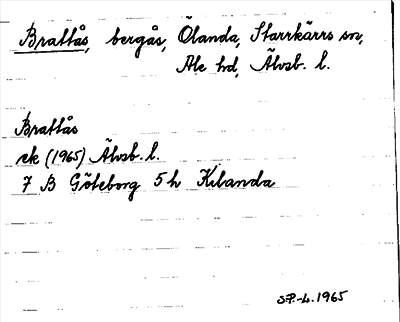 Brattås, bergås, Ölanda, Starrkärrs sn,
Ale hd, Älvsb. l.
Brattås
ek (1965) Älvsb. l.
7 B Göteborg 5 h Kilanda
S.P.-L. 1965